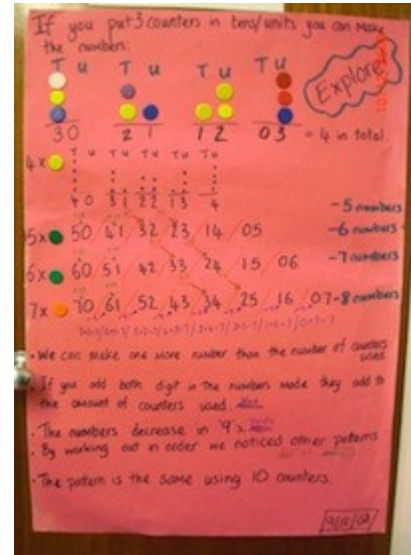 If you put 3 counters in tens/units you can make
the numbers:
T U T U T U T U
Explore
30 21 12 03 = 4 in total.
4x T U T U T U T U T U
40 31 22 13 4 -5 numbers
5x 50 41 32 23 14 05 -6 numbers
6x 60 51 42 33 24 15 06 -7 numbers
7x 70 61 52 43 34 25 16 07 -8 numbers
• We can make one more number than the number of counters
used.
• If you add both digit in the numbers made they add to
the amount of counters used.
• The numbers decrease in '9's.
• By working out in order we noticed other patterns
• The patern is the same using 10 counters.